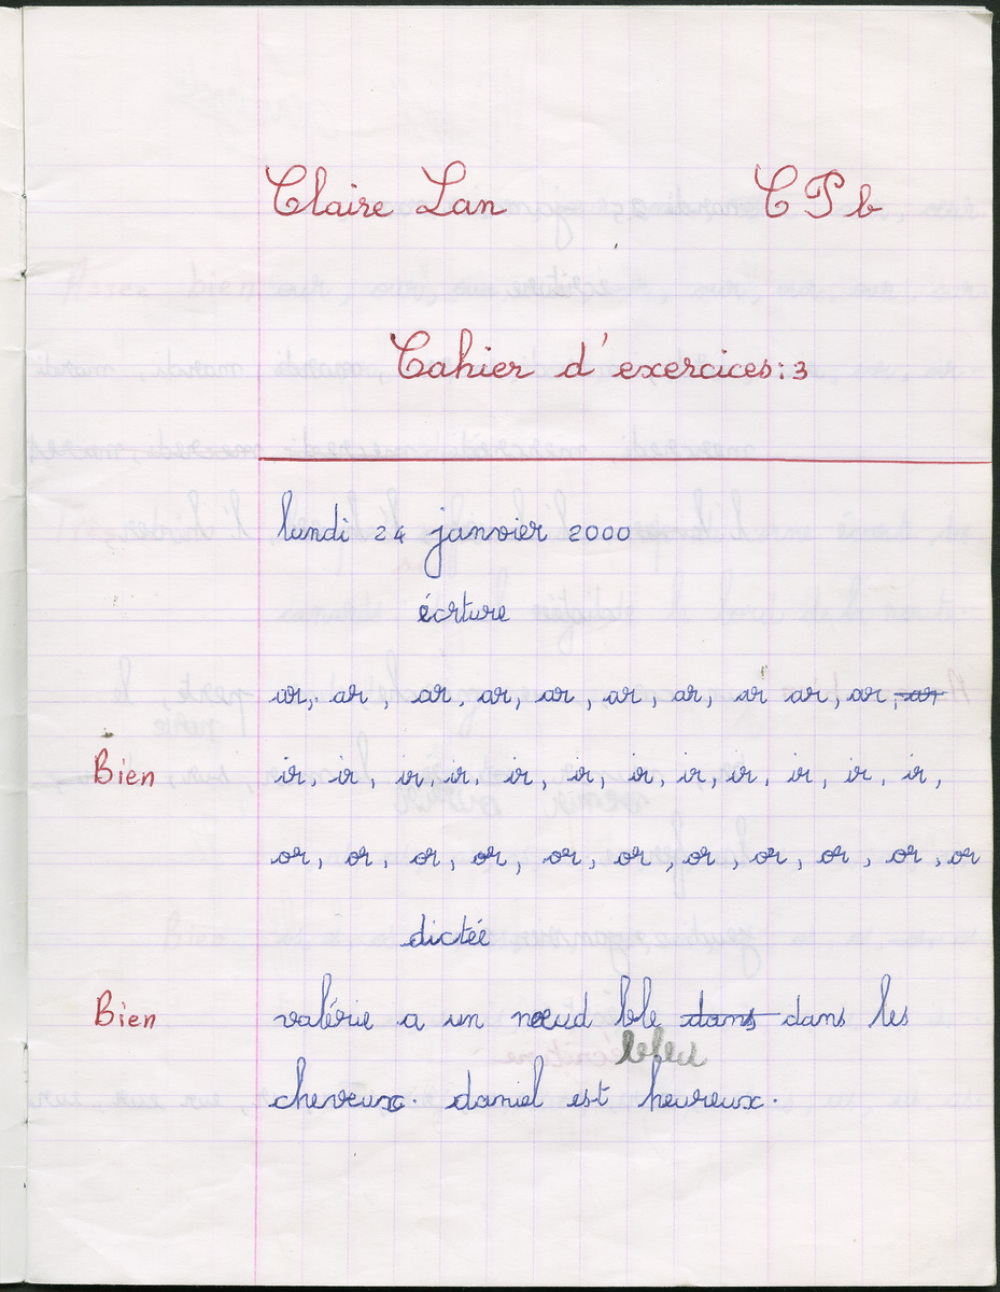 Claire Lan CPb
Cahier d'exercices : 3
lundi 24 janvier 2000
écriture
ar, ar ar, ar, ar, ar, ar, ar ar, ar, ar
Bien ir, ir, ir, ir, ir, ir, ir, ir, ir, ir, ir, ir,
or, or, or, or, or, or, or, or, or, or, or
dictée
Bien valérie a un nœud ble dans dans les
bleu
cheveux. daniel est heureux.